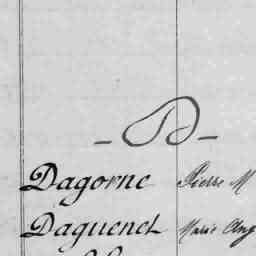 - D -
Dagorne Pierre M
Daguenet Marie Ang